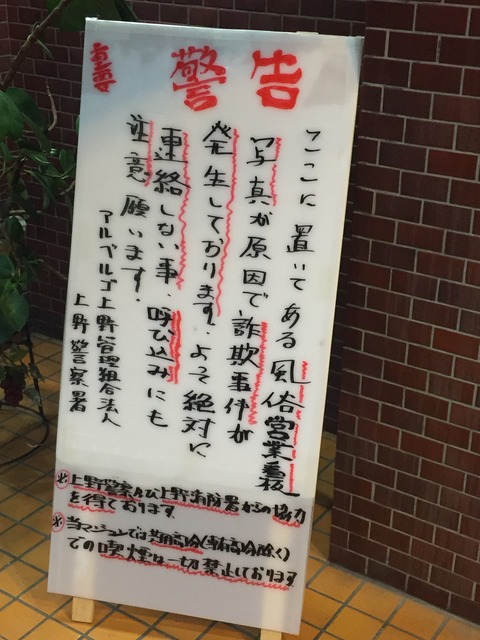 重要
警告
ここに置いてある風俗営業看板
写真が原因で詐欺事件が
発生しております。よって絶対に
連絡しない事、呼び込みにも
注意願います。
アルベルゴ上野管理組合法人
上野警察署
※上野警察及び上野消防署からの協力
を得ております
※当マンションでは共用部分(専有部分除く)
での喫煙は一切禁止しております